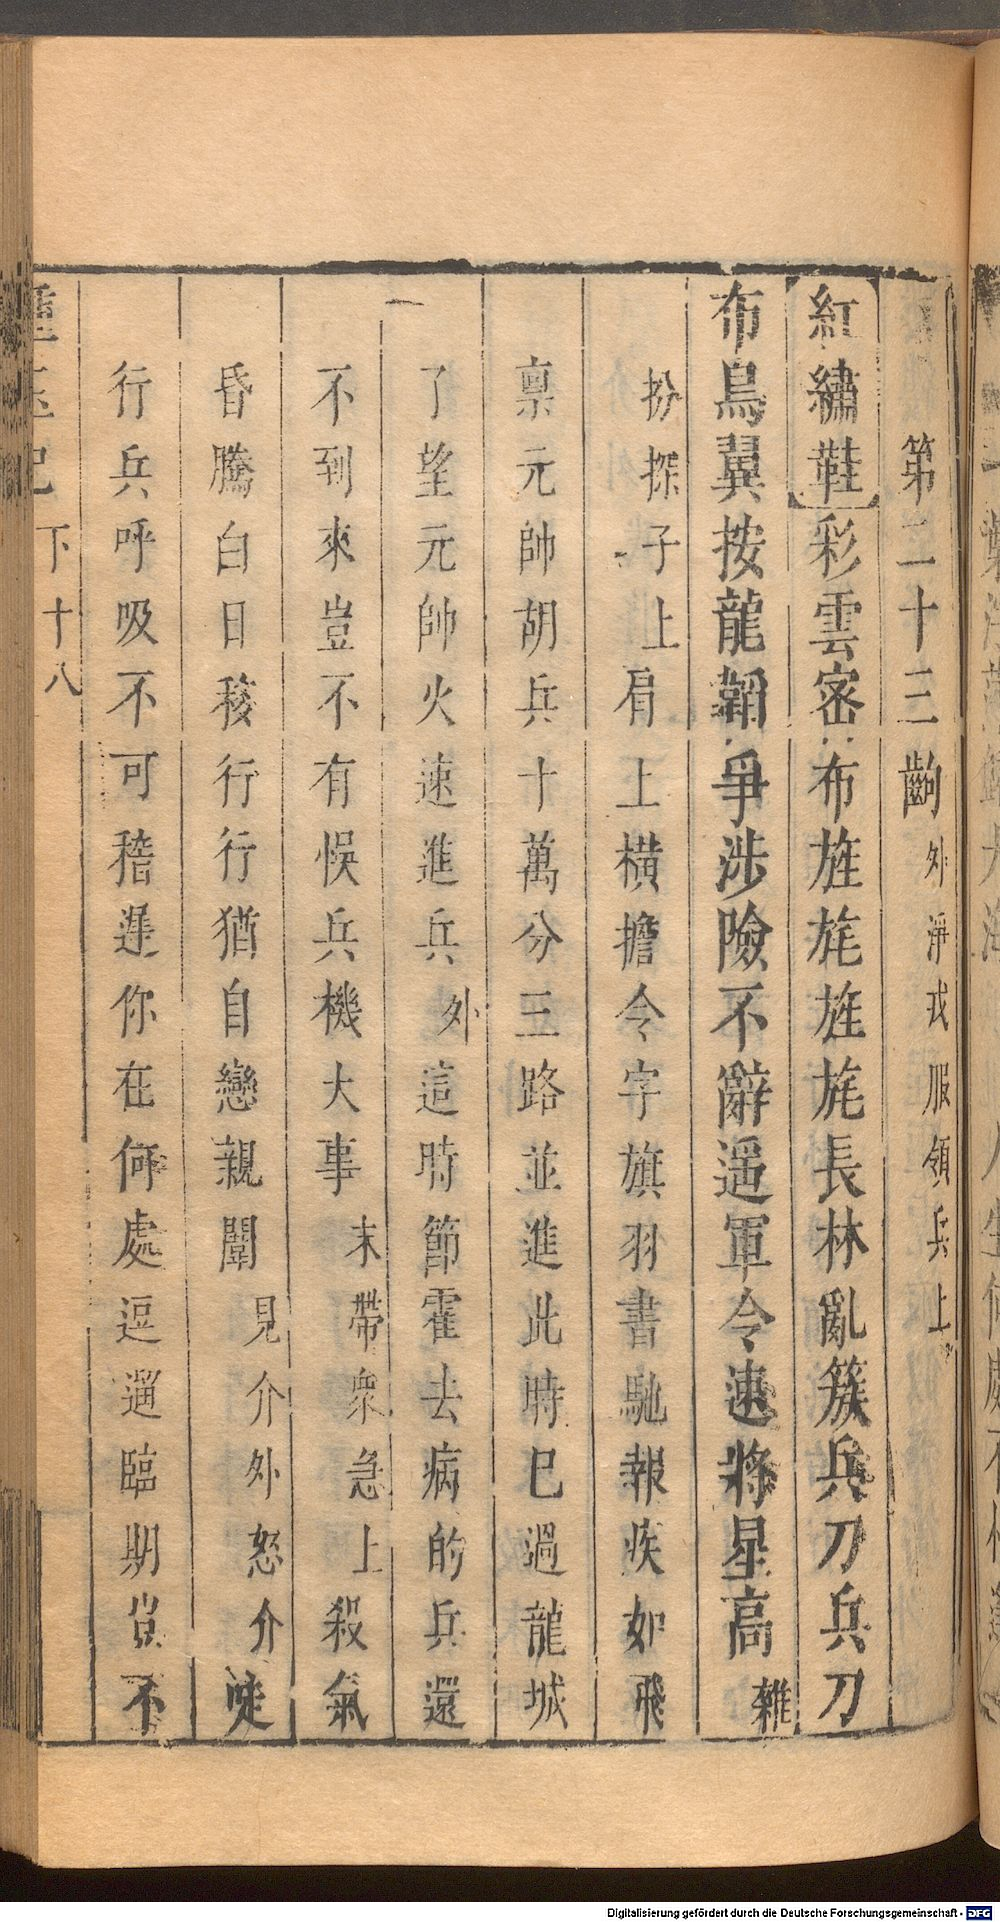 第二十三齣外淨戎服領兵上
紅繡鞋彩雲密布旌旄旌旄長林亂簇兵刀兵刀
布鳥翼按龍韜爭涉險不辭遥軍令速將星高雜
扮探子上肩上橫擔令字旗羽書馳報疾如飛
禀元帥胡兵十萬分三路並進此時已過龍城
了望元帥火速進兵外這時節霍去病的兵還
不到來豈不有悞兵機大事末帶衆急上殺氣
昏騰白日移行行猶自戀親闈見介外怒介唗
行兵呼吸不可稽遲你在何處逗遛臨期豈不
種玉記
下十八
Digitalisierung gefördert durch die Deutsche Forschungsgemeinschaft - DFG